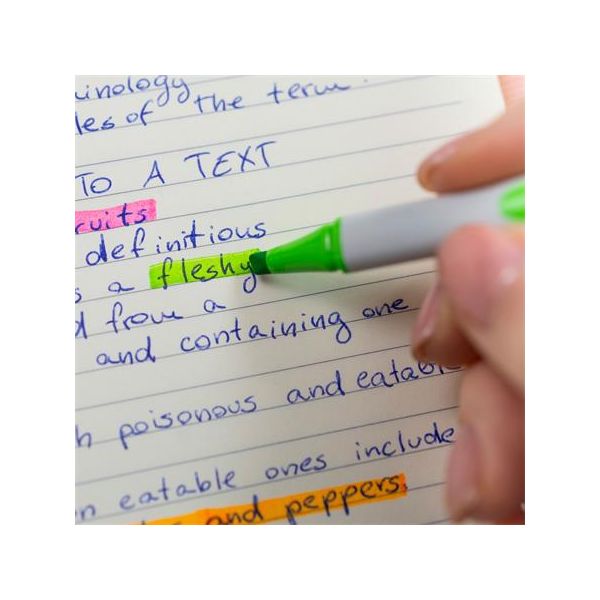 inology
les of the term.
TO A TEXT
ruits
definitious
s a fleshy
d from a
and containing one
h poisonous and eatabl
n eatable ones include
and peppers.